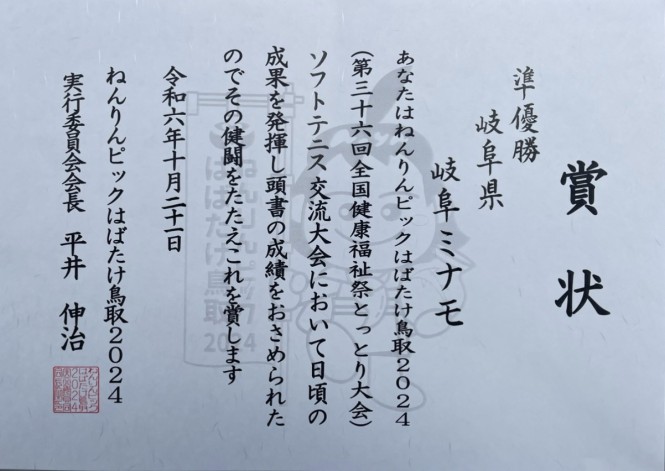 賞状
準優勝
岐阜県
岐阜ミナモ
あなたはねんりんピックはばたけ鳥取2024
(第三十六回全国健康福祉祭とっとり大会)
ソフトテニス交流大会において日頃の
成果を発揮し頭書の成績をおさめられた
のでその健闘をたたえこれを賞します
令和六年十月二十一日
ねんりんピックはばたけ鳥取2024
実行委員会会長 平井伸治
ねんりんピック
はばたけ鳥取
2024